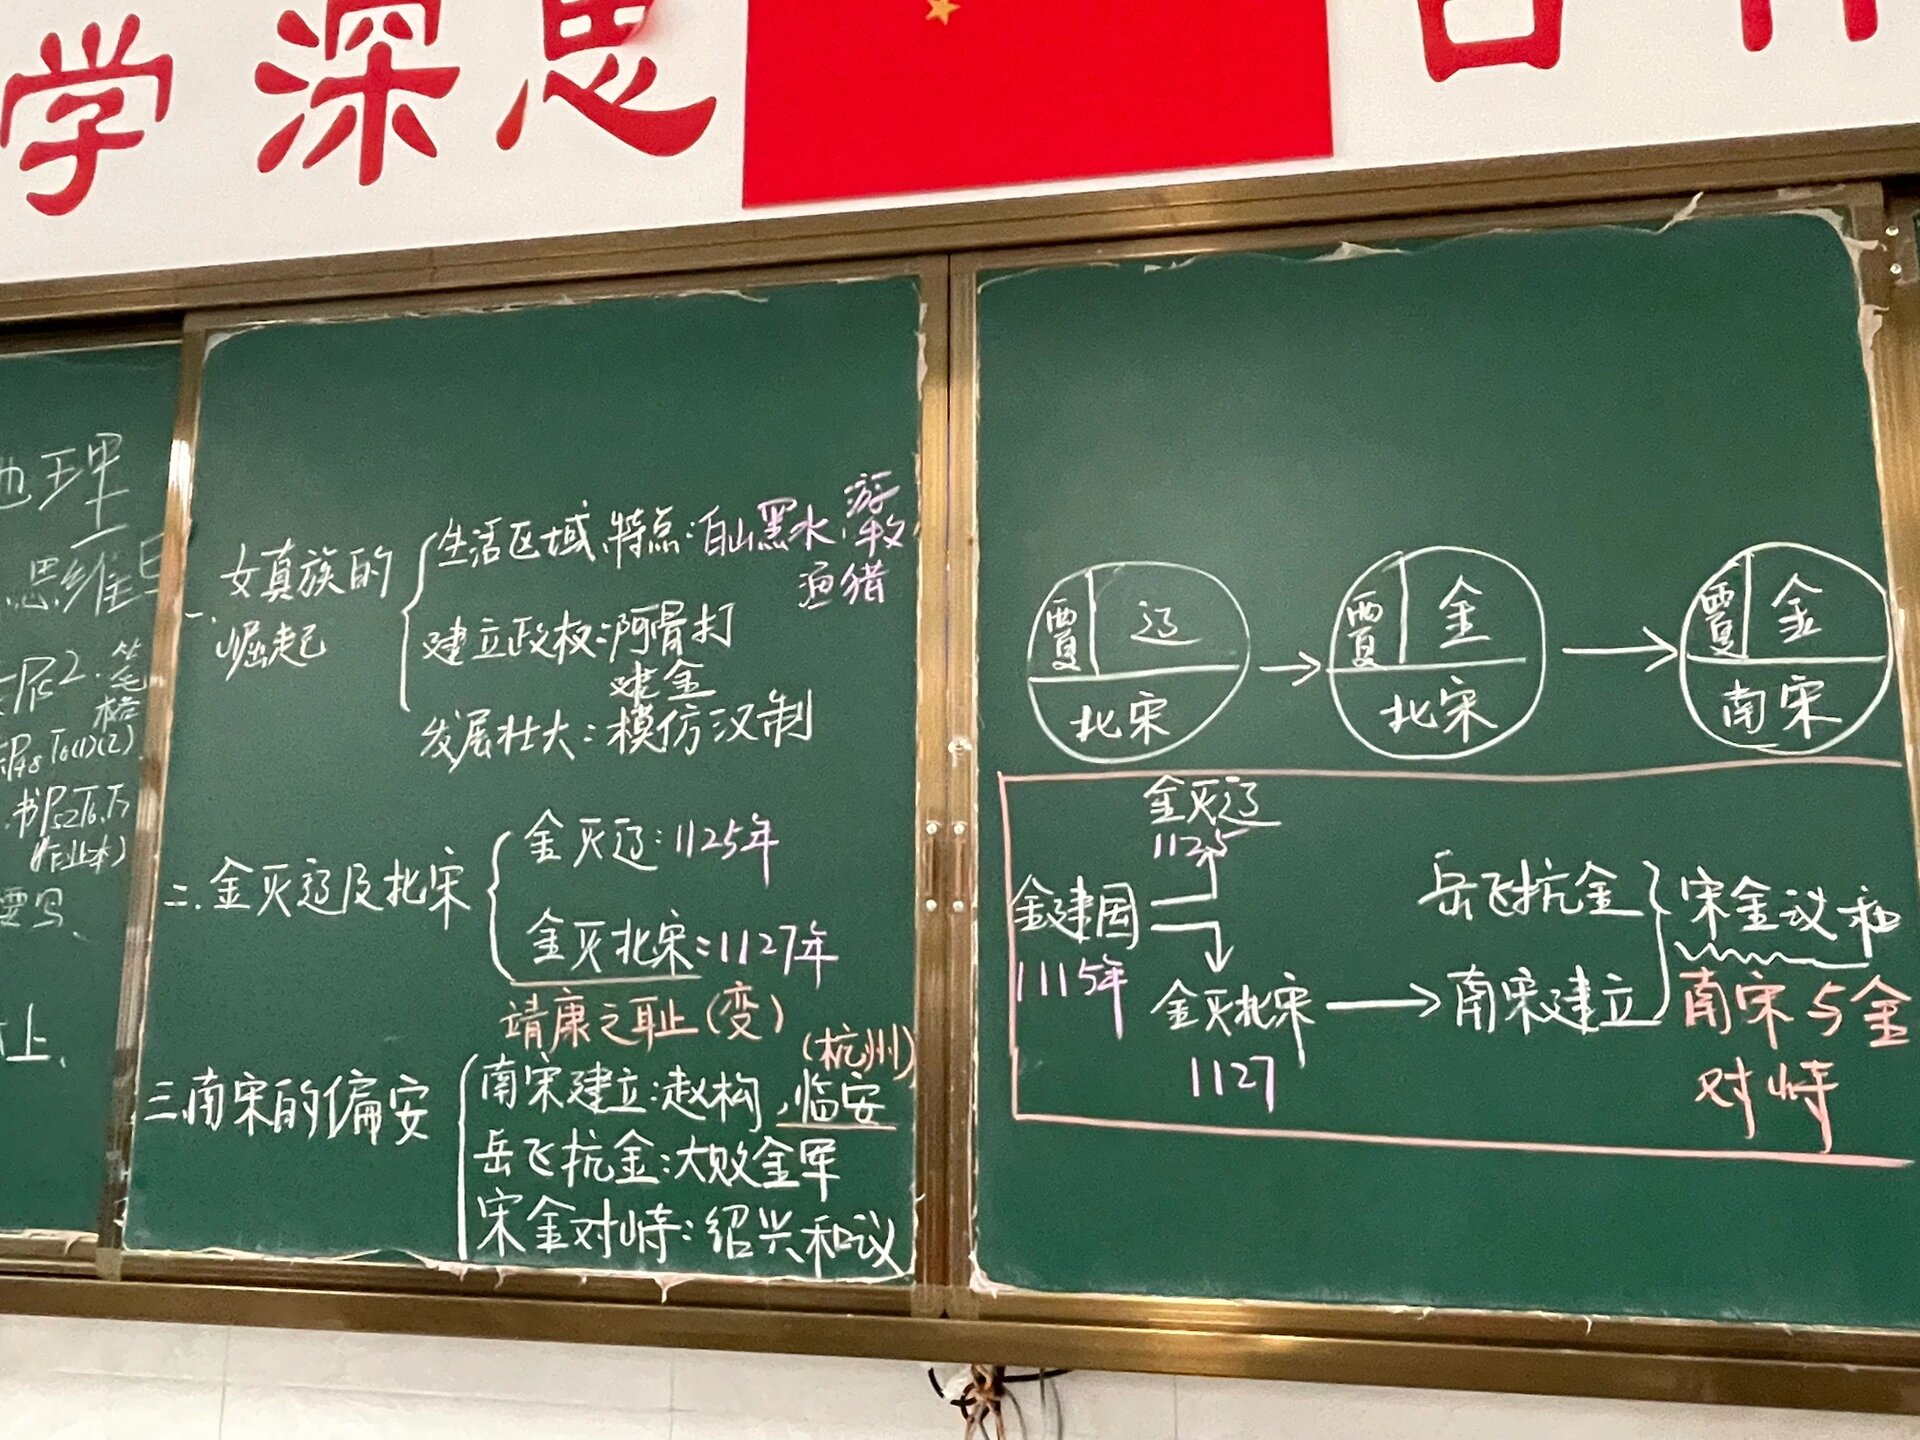 学深思
地理
思维
P52.
P48 T6(1)(2)
书P52T6、T7
作业本)
要写、
上、
一、女真族的
崛起
生活区域、特点:白山黑水、游牧
渔猎
建立政权:阿骨打
建金
发展壮大:模仿汉制
二.金灭辽及北宋
金灭辽:1125年
金灭北宋:1127年
靖康之耻(变)
三.南宋的偏安
(杭州)
南宋建立:赵构,临安
岳飞抗金:大败金军
宋金对峙:绍兴和议
西夏 辽 北宋
西夏 金 北宋
西夏 金 南宋
金灭辽
1125
金建国
1115年
金灭北宋
1127
南宋建立
岳飞抗金
宋金议和
南宋与金
对峙